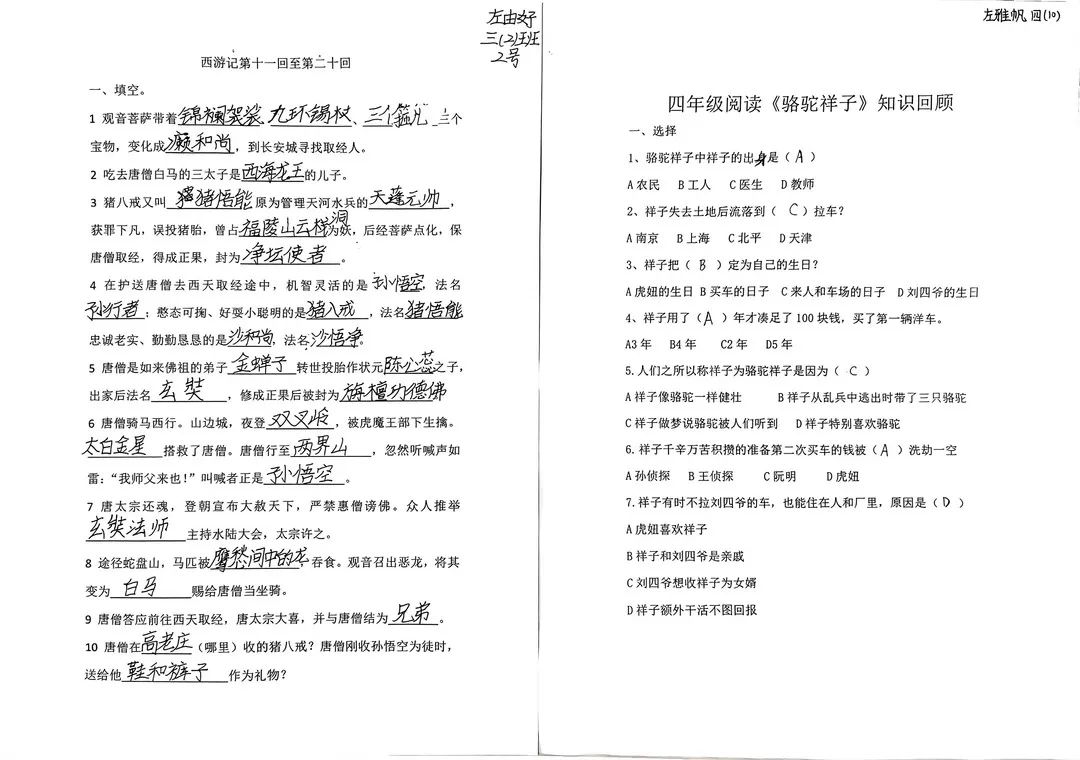 左由好
三(2)班
2号
西游记第十一回至第二十回
一、填空。
1 观音菩萨带着锦襕袈裟、九环锡杖、三个箍儿 三个
宝物，变化成癞和尚，到长安城寻找取经人。
2 吃去唐僧白马的三太子是西海龙王的儿子。
3 猪八戒又叫 猪悟能 原为管理天河水兵的天蓬元帅，
获罪下凡，误投猪胎，曾占福陵山云栈洞为妖，后经菩萨点化，保
唐僧取经，得成正果，封为净坛使者。
4 在护送唐僧去西天取经途中，机智灵活的是 孙悟空，法名
孙行者；憨态可掬、好耍小聪明的是猪八戒，法名猪悟能
忠诚老实、勤勤恳恳的是沙和尚，法名沙悟净。
5 唐僧是如来佛祖的弟子 金蝉子 转世投胎作状元陈光蕊之子，
出家后法名玄奘，修成正果后被封为旃檀功德佛
6 唐僧骑马西行。山边城，夜登双叉岭，被虎魔王部下生擒。
太白金星 搭救了唐僧。唐僧行至两界山，忽然听喊声如
雷：“我师父来也！”叫喊者正是孙悟空。
7 唐太宗还魂，登朝宣布大赦天下，严禁惠僧谤佛。众人推举
玄奘法师 主持水陆大会，太宗许之。
8 途径蛇盘山，马匹被鹰愁间中的龙吞食。观音召出恶龙，将其
变为 白马 赐给唐僧当坐骑。
9 唐僧答应前往西天取经，唐太宗大喜，并与唐僧结为兄弟。
10 唐僧在高老庄（哪里）收的猪八戒？唐僧刚收孙悟空为徒时，
送给他 鞋和裤子 作为礼物？
左雅帆 四(10)
四年级阅读《骆驼祥子》知识回顾
一、选择
1、骆驼祥子中祥子的出身是（ A ）
A 农民 B 工人 C 医生 D 教师
2、祥子失去土地后流落到（ C ）拉车？
A 南京 B 上海 C 北平 D 天津
3、祥子把（ B ）定为自己的生日？
A 虎妞的生日 B 买车的日子 C 来人和车场的日子 D 刘四爷的生日
4、祥子用了（ A ）年才凑足了 100 块钱，买了第一辆洋车。
A3 年 B4 年 C2 年 D5 年
5.人们之所以称祥子为骆驼祥子是因为（ C ）
A 祥子像骆驼一样健壮 B 祥子从乱兵中逃出时带了三只骆驼
C 祥子做梦说骆驼被人们听到 D 祥子特别喜欢骆驼
6、祥子千辛万苦积攒的准备第二次买车的钱被（ A ）洗劫一空
A 孙侦探 B 王侦探 C 阮明 D 虎妞
7、祥子有时不拉刘四爷的车，也能住在人和厂里，原因是（ D ）
A 虎妞喜欢祥子
B 祥子和刘四爷是亲戚
C 刘四爷想收祥子为女婿
D 祥子额外干活不图回报